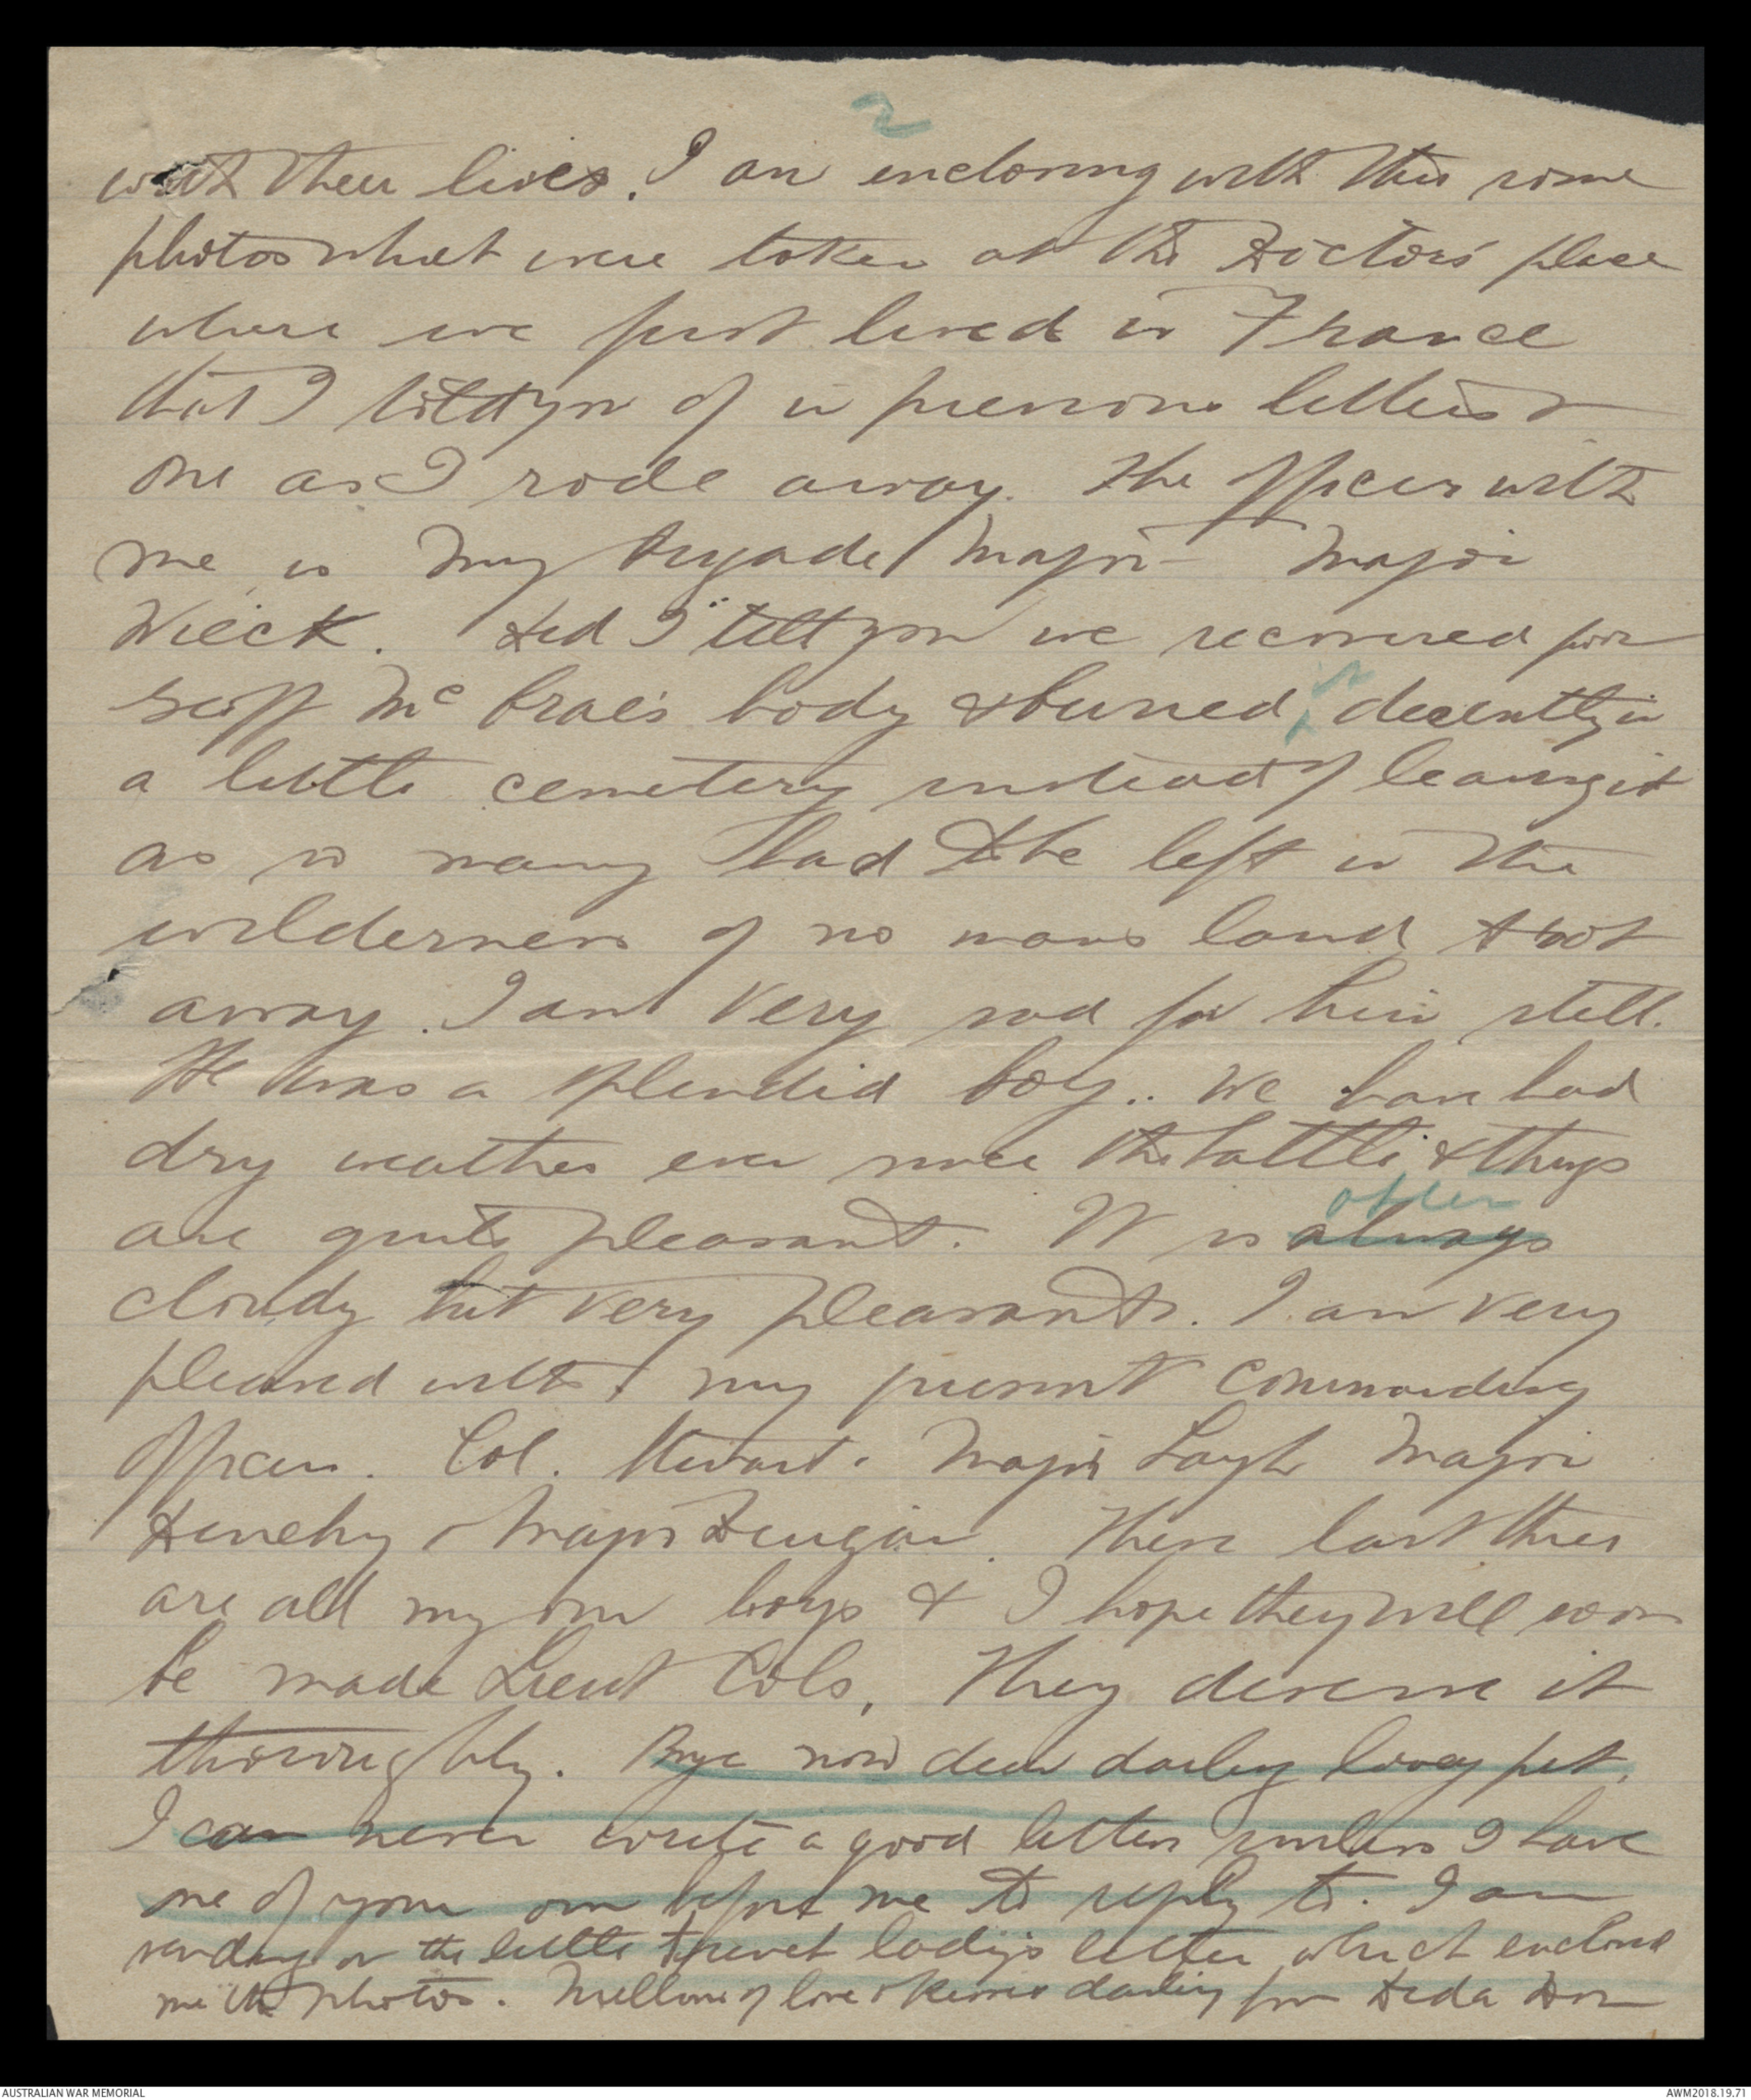 2
with their lives. I am enclosing with this some
photos what were taken at the Doctors' place
where we first lived in France
that I told you of in previous letters &
one as I rode away. The officer with
me is my Brigade Major - Major
Wieck. Did I tell you we recovered poor
Geoff McCrae's body & buried it decently in
a little cemetery instead of leaving it
as so many had to be left in the
wilderness of no mans land to rot
away. I am very sad for him still.
He was a splendid boy.. We have had
dry weather ever since the battle & things
often
are quite pleasant. It is always
cloudy but very pleasant. I am very
pleased with my present commanding
officers. Col. Stewart. Major Layh Major
Denehy & Major Duigan. These last three
are all my own boys & I hope they will soon
be made Lieut Cols. They deserve it
thoroughly. Bye now dear darling lovey pet.
I can never write a good letter unless I have
one of your own before me to reply to. I am
sending on the little French lady's letter which enclosed
me the photos. Millions of love & kisses darling from Dida